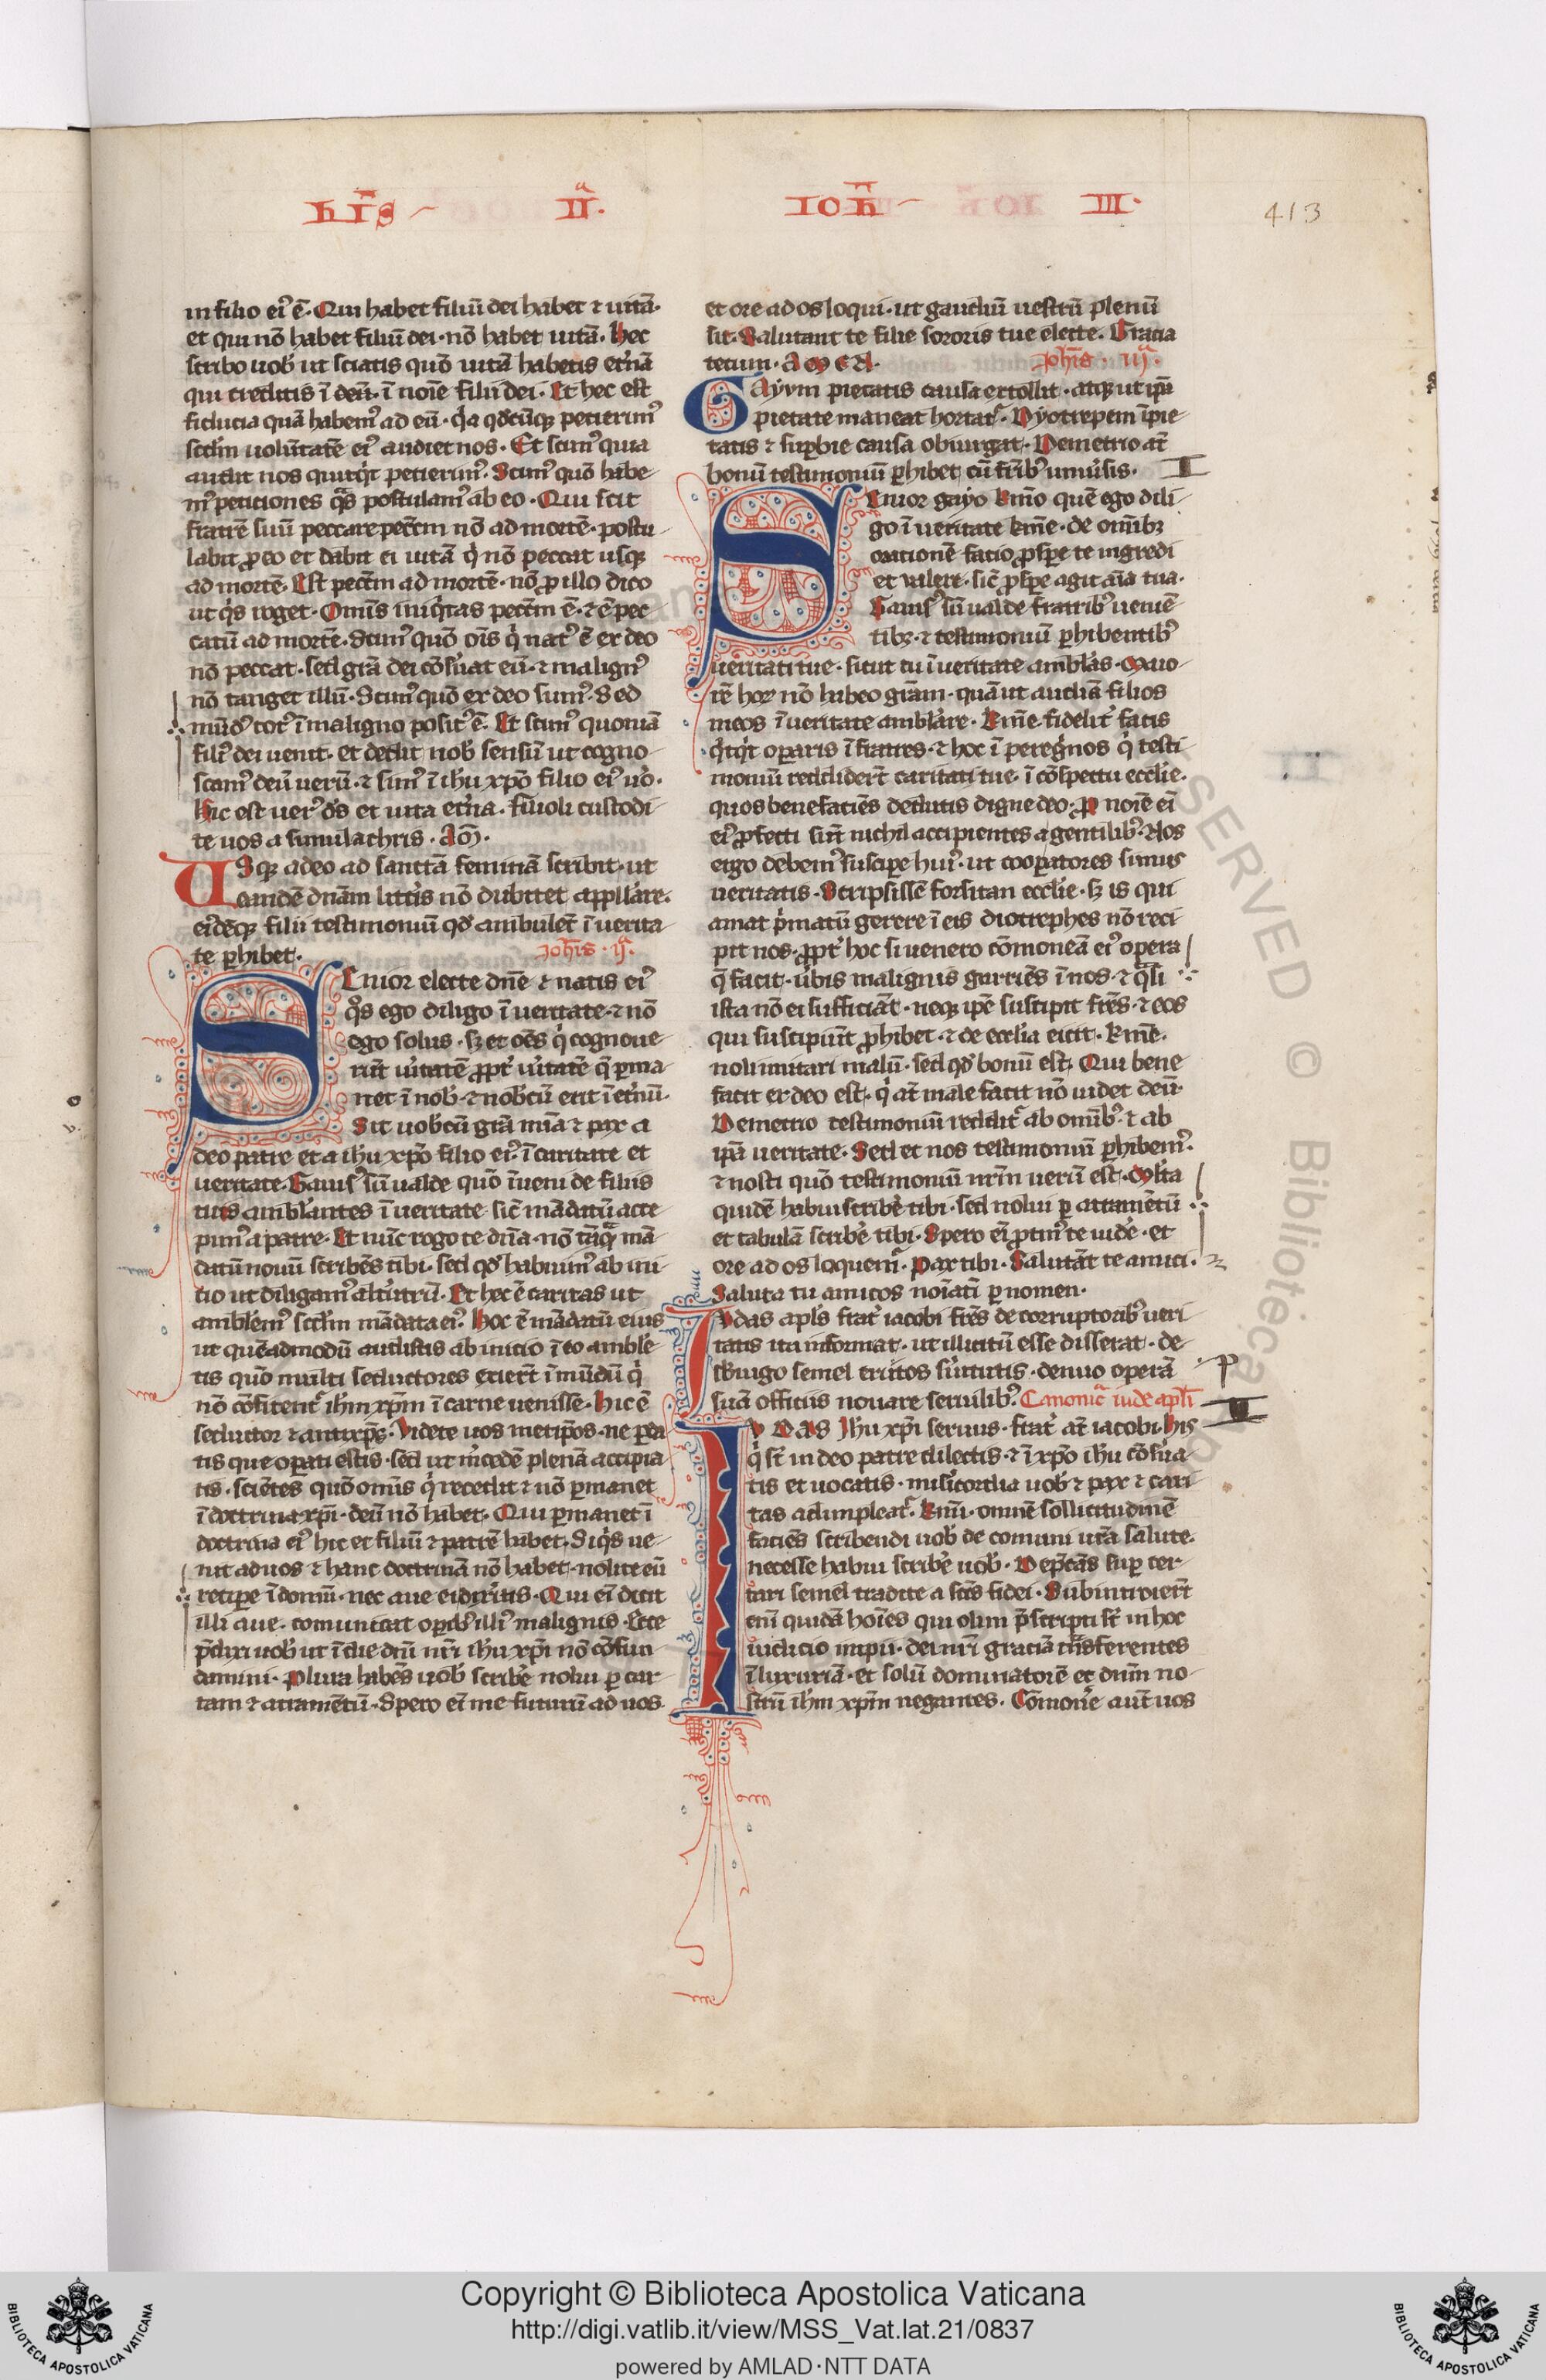 hīs II.ª
IOħ III.
413
in filio ei᷒ ē. Qui habet filiū dei habet ⁊ uitā.
et qui nō habet filiū dei. nō habet uitā. Hec
scribo uob̄ ut sciatis quō uitā habetis et̄nā
qui creditis ī noīe filii dei. Et hec est
fiducia quā habem᷒ ad eū. q̇a qd̄cūq̨ petierim᷒
scd̄m uolūtatē ei᷒ audiet nos. Et scim᷒ quia
audit nos quicq̇d petierim᷒. Scim᷒ quō habe
m᷒ peticiones q̄s postulam᷒ ab eo. Qui scit
fratrē suū peccare pecc̄m nō ad mortē. postu
labit ꝓ eo et dabit ei uitā q̇ nō peccat usq̨
ad mortē. Est pecc̄m ad mortē. nō ꝓ illo dico
ut q̇s roget. Om̄is iniq̇tas pecc̄m ē. ⁊ ē pec
catū ad mortē. Scim᷒ quō oīs q̇ nat᷒ ē ex deo
nō peccat. sed gr̄a dei cōs̄uat eū. ⁊ malign᷒
nō tanget illū. Scim᷒ quō ex deo sum᷒. Sed
mūd᷒ tot᷒ ī maligno posit᷒ ē. Et scim᷒ quoniā
fili᷒ dei uenit. et dedit nob̄ sensū ut cogno
scam᷒ deū uerū. ⁊ sim᷒ ī ih̄u xp̄o filio ei᷒ uō.
Hic est uer᷒ d̄s et uita et̄na. filioli custodi
te uos a simulachris. Am̄.
Usq̨ adeo ad sanctā feminā scribit. ut
eandē dn̄am litt̄is nō dubitet appll̄are.
ei᷒dēq̨ filii testimoniū qd̄ ambulēt ī uerita
te ꝑhibet. Joh̄is. ij.ª
Senior electe dn̄e ⁊ natis ei᷒
q̄s ego diligo ī ueritate. ⁊ nō
ego solus. sꝫ et om̄s q̇ cognoue
rūt ūitatē ꝓpt̄ ūitatē q̄ ꝑma
net ī nob̄. ⁊ nob̄cū erit ī et̄nū.
Sit uob̄cū gr̄a mīa ⁊ pax a
deo patre et a ih̄u xp̄o filio ei᷒. ī caritate et
ueritate. Gauis᷒ sū ualde quō īueni de filiis
tuis ambl̄antes ī ueritate sic̄ mādatū acce
pim᷒ a patre. Et nūc rogo te dn̄a. nō tāq̄ mā
datū nouū scribēs tibi. sed qd̄ habuim᷒ ab ini
cio ut diligam᷒ alt̄utrū. Et hec ē caritas ut
ambl̄em᷒ scd̄m mādata ei᷒. Hoc ē mādatū eius
ut quēadmodū audistis ab inicio ī eo amble
tis quō multi seductores exiert̄ ī mūdū q̇
nō cōfitent̄ ih̄m xp̄m ī carne uenisse. Hic ē
seductor ⁊ antixp̄s. Videte uos metip̄os. ne ꝑda
tis que oꝑati estis. sed ut m̄cedē plenā accipia
tis. sciētes quō om̄is q̇ recedit ⁊ nō ꝑmanet
ī doctrina xp̄i. deū nō habet. Qui ꝑmanet ī
doctrina ei᷒ hic et filiū ⁊ patrē habet. Siq̇s ue
nit ad uos ⁊ hanc doctrinā nō habet. nolite eū
recipe ī domū. nec aue ei dix̄itis. Qui ei᷒ dicit
illi aue. comunicat oꝑib᷒ illi᷒ malignis. Ecce
p̄dixi uob̄ ut ī die dn̄i nr̄i ih̄u xp̄i nō cōfun
damini. Plura habēs uob̄ scribe nolui ꝑ car
tam ⁊ atramētū. Spero ei me futurū ad uos
et ore ad os loqui. ut gaudiū uestrū plenū
sit. Salutant te filie sororis tue electe. Gracia
tecum. AMEN. Joh̄is. iij.ª
Gayum pietatis causa extollit. atq̨ ut ip̄a
pietate maneat hortat᷑. Dyotrepem īpie
tatis ⁊ suꝑbie causa obiurgat. Demetrio at̄
bonū testimoniū ꝑhibet cū fr̄ib᷒ uniūsis. I
Senior gayo km̄o quē ego dili
go ī ueritate km̄e. de om̄ibꝫ
orationē facio ꝓspe te ingredi
et ualere. sic̄ ꝓspe agit aīa tua.
Gauis᷒ sū ualde fratrib᷒ ueniē
tibꝫ. ⁊ testimoniū ꝑhibentib᷒
ueritati tue. sicut tu ī ueritate amblas. Maio
rē hoꝝ nō habeo gr̄am. quā ut audiā filios
meos ī ueritate amblare. Km̄e. fidelit̄ facis
q̇cq̇d oꝑaris ī fratres. ⁊ hoc ī peregnos q̇ testi
moniū reddidert̄ caritati tue. ī cōspectu eccl̄ie.
quos benefaciēs deducis digne deo. ꝓ noīe ei
ei᷒ ꝓfecti sūt nichil accipientes a gentilib᷒. Nos
ergo debem᷒ suscipe hui᷒. ut cooꝑatores simus
ueritatis. Scripsissē forsitan eccl̄ie. sꝫ is qui
amat p̄matū gerere ī eis diotrephes nō reci
pit nos. ꝓpt̄ hoc si uenero cōmoneā ei᷒ opera
q̄ facit. ūbis malignis garriēs ī nos. ⁊ q̄si
ista nō ei sufficiāt. neq̨ ip̄e suscipit fr̄es. ⁊ eos
qui suscipiūt ꝓhibet. ⁊ de eccl̄ia eicit. Km̄e.
noli imitari malū. sed qd̄ bonū est. Qui bene
facit ex deo est. q̇ at̄ male facit nō uidet deū.
Demetrio testimoniū reddit᷑ ab om̄ib᷒. ⁊ ab
ip̄a ueritate. Sed et nos testimoniū ꝑhibem᷒.
⁊ nosti quō testimoniū nr̄m uerū est. Mlta
quidē habui scribe tibi. sed nolui ꝑ atramētū
et tabulā scribe tibi. Spero ei ꝓtin᷒ te uide. et
ore ad os loquem᷑. Pax tibi. Salutāt te amici.
Saluta tu amicos noīati ꝑ nomen.
Judas apl̄s frat̄ iacobi fr̄es de corruptorib᷒ ueri
tatis ita informat. ut illicitū esse disserat. de
s̄uiugo semel erutos s̄uitutis. denuo operā
suā officiis nouare seruilib᷒. Canonic̄ iude apl̄i
Iudas Ihu xp̄i seruus. frat̄ at̄ iacobi. His
q̇ st̄ in deo patre dilectis. ⁊ ī xp̄o ih̄u cōs̄ua
tis et uocatis. mis̄icordia uob̄ ⁊ pax ⁊ cari
tas adimpleat᷑. Km̄i. omnē sollicitudinē
faciēs scribendi uob̄ de comuni ur̄a salute.
necesse habui scribe uob̄. Dep̄cās suꝑ cer
tari semel tradite a sc̄is fidei. Subintroiert̄
eni quidā hoīes qui olim p̄scripti st̄ in hoc
iudicio impii. dei nr̄i graciā tn̄sferentes
ī luxuriā. et solū dominatorē et dn̄m no
strū ih̄m xp̄m negantes. Cōmone aut̄ uos
Copyright © Biblioteca Apostolica Vaticana
http://digi.vatlib.it/view/MSS_Vat.lat.21/0837
powered by AMLAD·NTT DATA
BIBLIOTECA APOSTOLICA VATICANA
BIBLIOTECA APOSTOLICA VATICANA